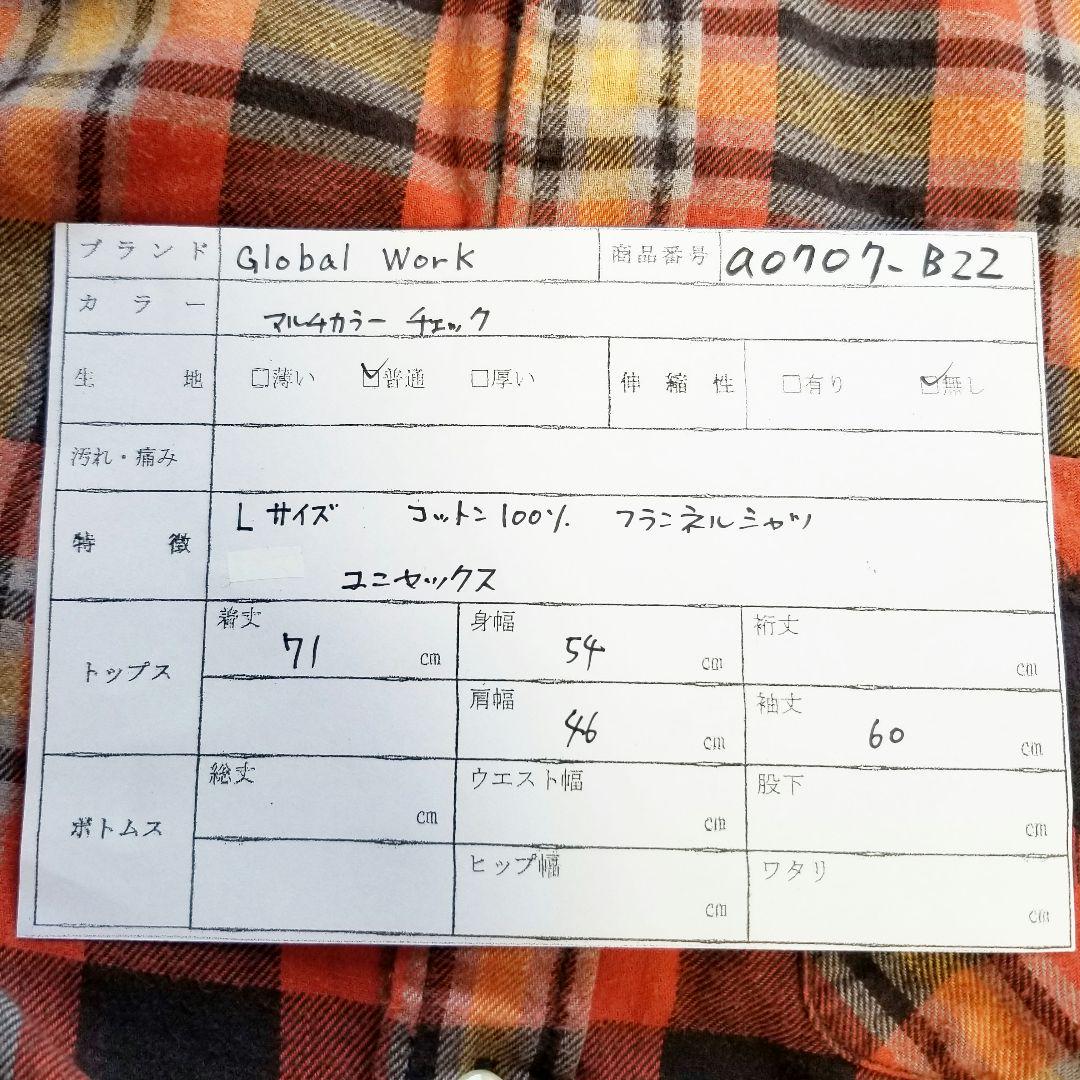 ブランド Global Work 商品番号 a0707-B22
カラー マルチカラー チェック
生地 □薄い ☑普通 □厚い 伸縮性 □有り ☑無し
汚れ・痛み
特徴 Lサイズ コットン100% フランネルシャツ
ユニセックス
トップス 着丈 71 cm 身幅 54 cm 裄丈 cm
肩幅 46 cm 袖丈 60 cm
ボトムス 総丈 cm ウエスト幅 cm 股下 cm
ヒップ幅 cm ワタリ cm